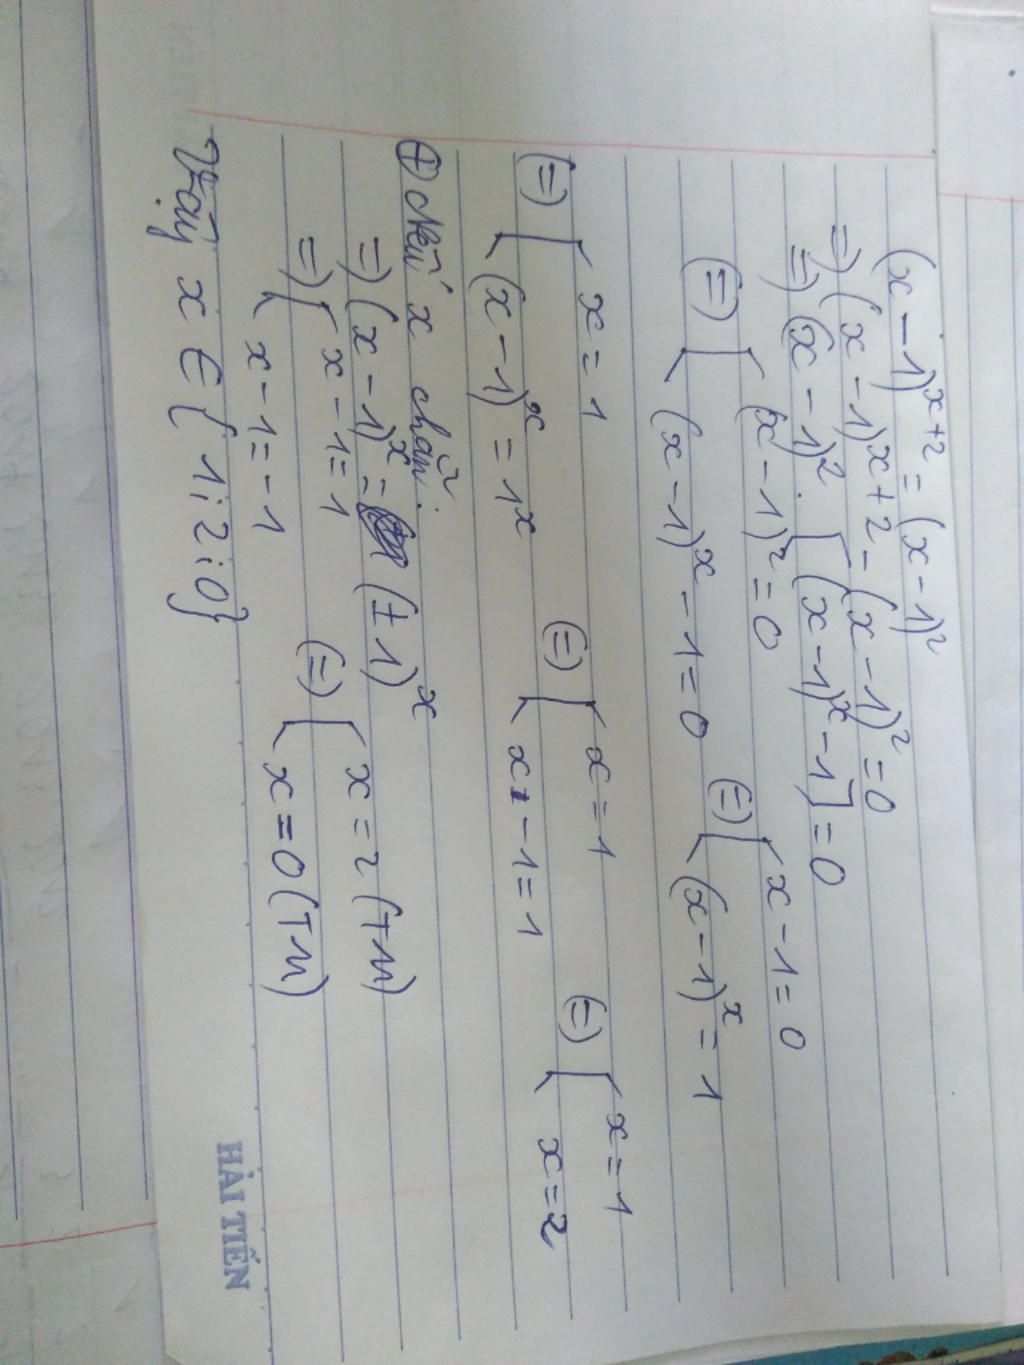 (x-1)^{x+2} = (x-1)^2
=) (x-1)^{x+2} - (x-1)^2 = 0
=) (x-1)^2 . [(x-1)^x - 1] = 0
(=) [ (x-1)^2 = 0 (=) [ x-1 = 0
(x-1)^x - 1 = 0 (x-1)^x = 1
(=) [ x = 1 (=) [ x = 1 (=) [ x = 1
(x-1)^x = 1^x x-1 = 1 x = 2
⊕ Nếu x chẵn:
=) (x-1)^x = (±1)^x
=) [ x-1 = 1 (=) [ x = 2 (TM)
x-1 = -1 x = 0 (TM)
Vậy x ∈ {1; 2; 0}
HẢI TIẾN